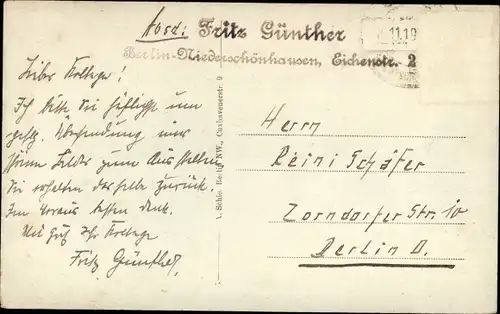 Absd: Fritz Günther
Berlin-Niederschönhausen, Eichenstr. 2
11.19
Lieber Kollege!
Ich bitte Sie höflichst um
gefl. Übersendung
Bilder zum Ausstellen
Sie erhalten dieselbe zurück.
Im voraus besten Dank.
Mit Gruß Ihr Kollege
Fritz Günther,
Herrn
Reini Schäfer
Zorndorfer Str. 10
Berlin O.
Berlin NW., Cuxhavenerstr. 9